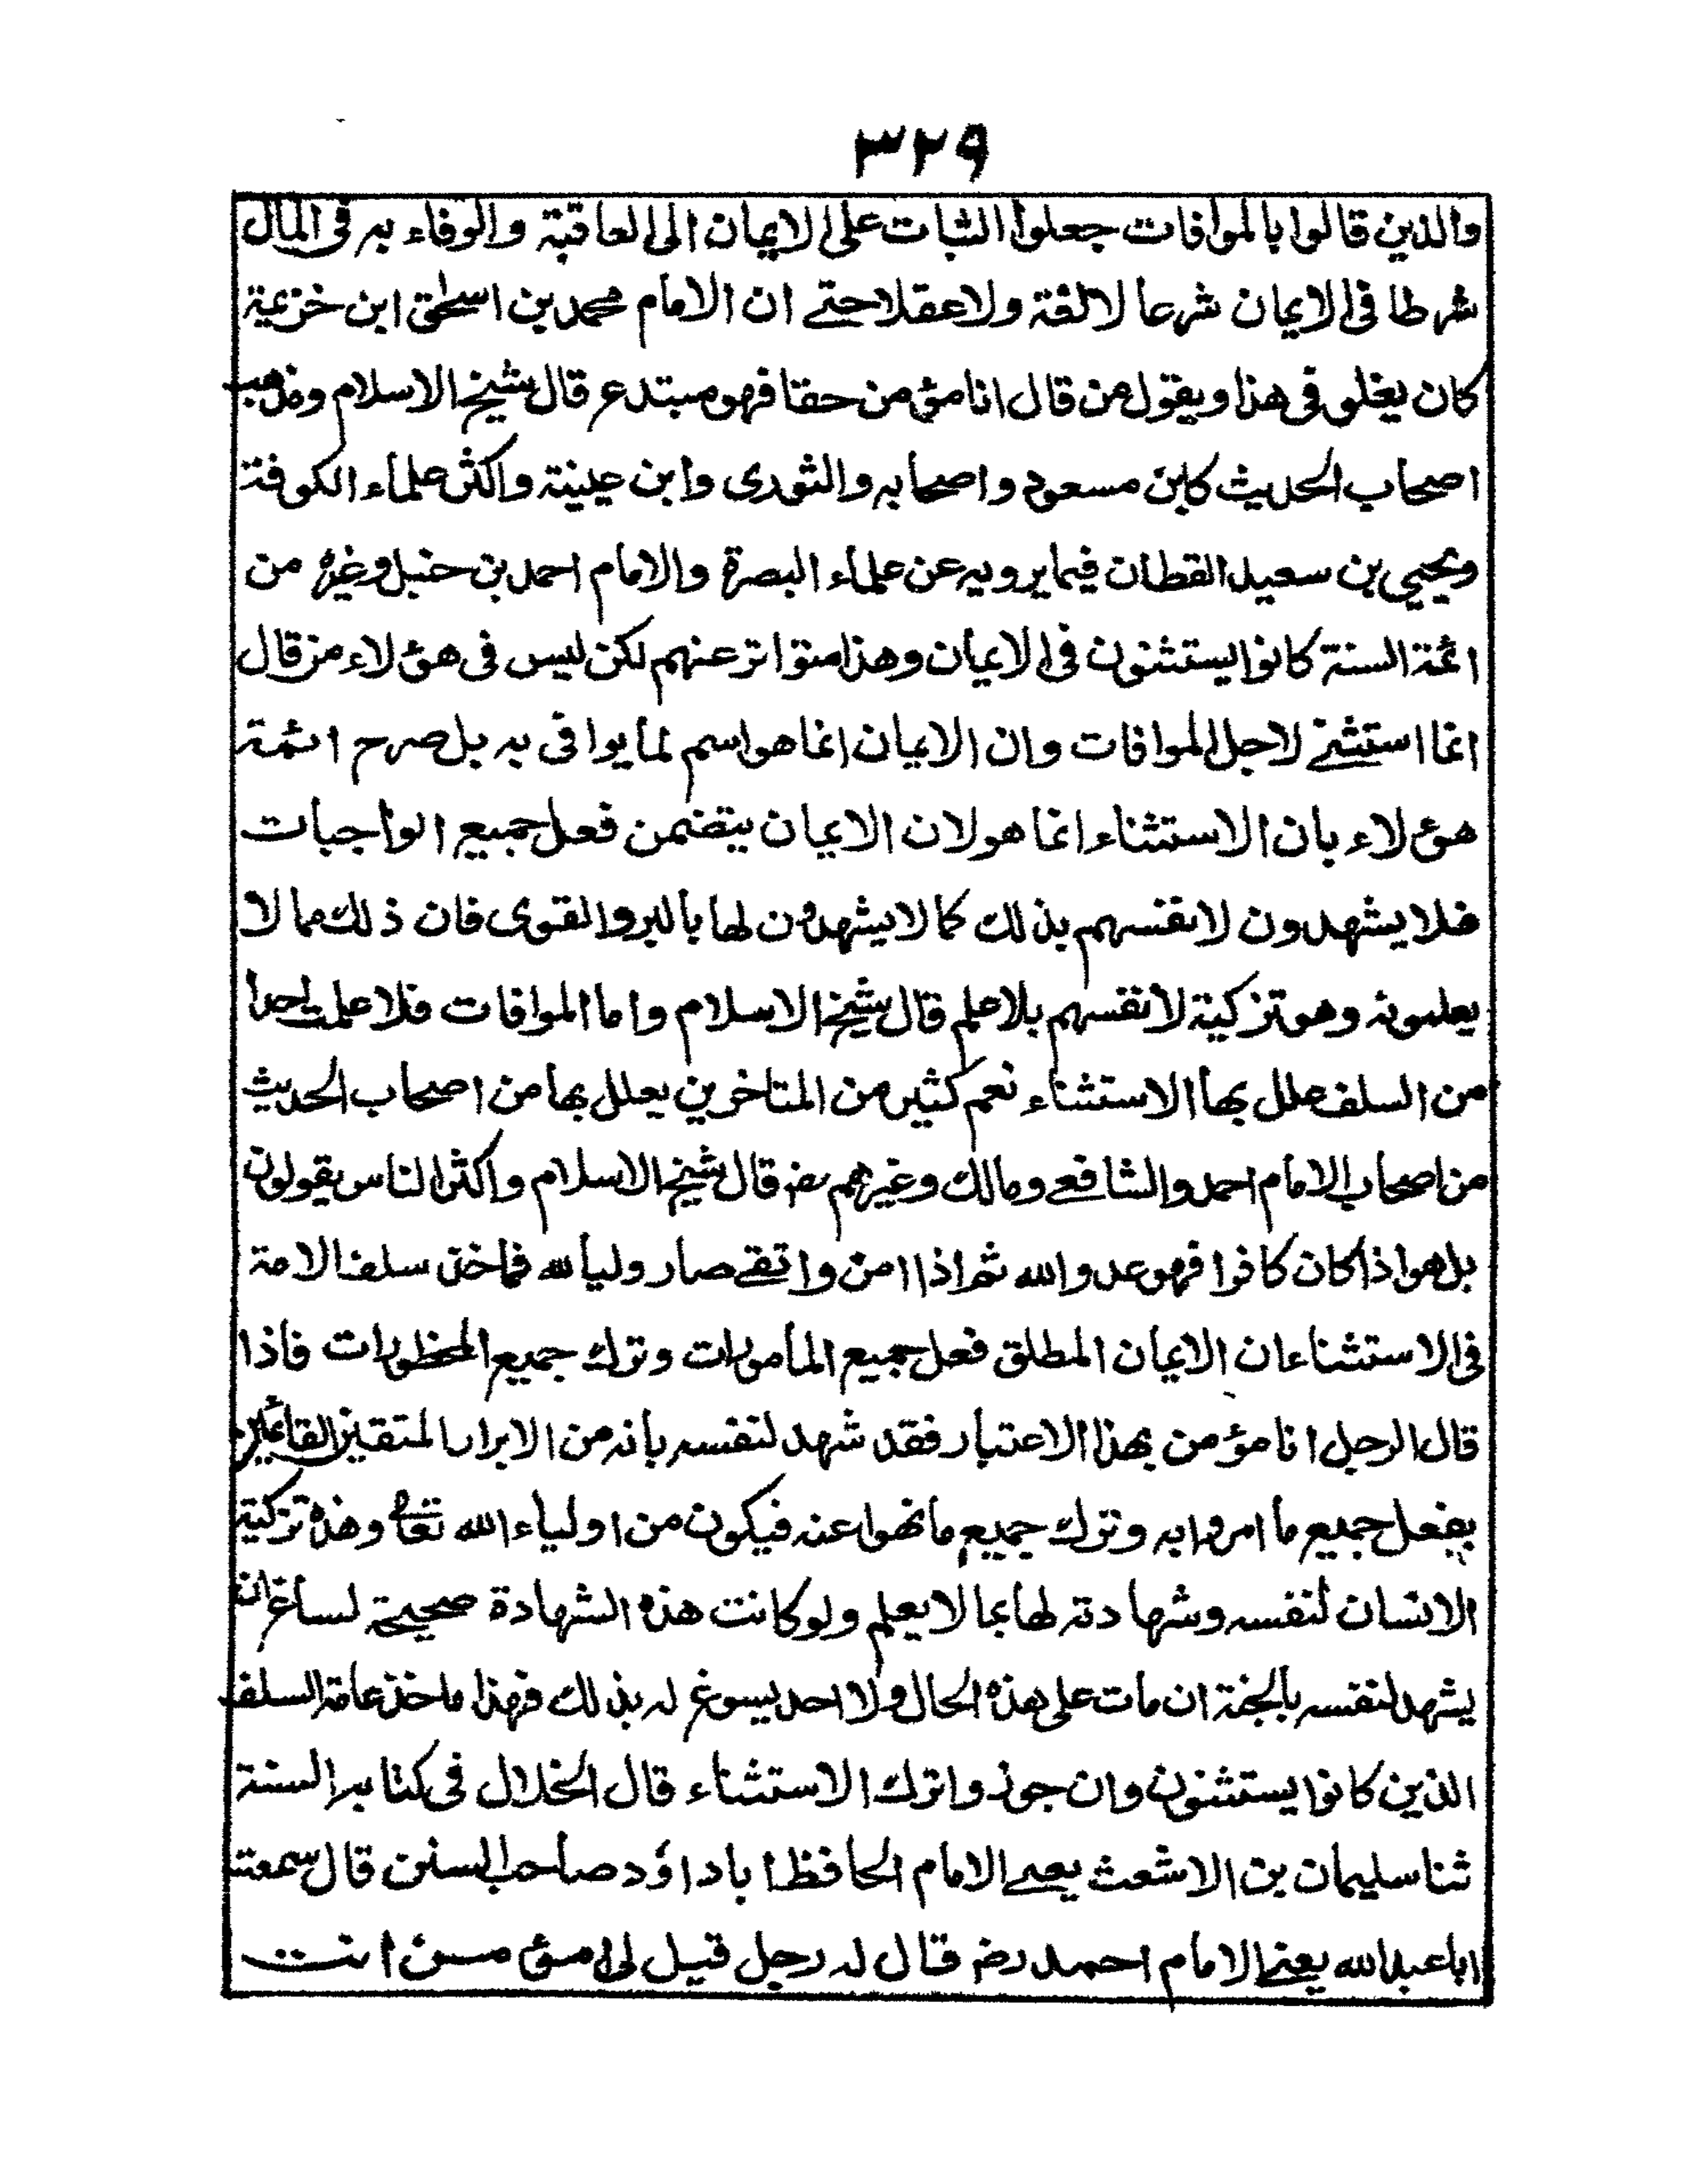 ٣٢٩
والذين قالوا بالموافات جعلوا الثبات على الايمان الى العاقبة والوفاء به فى المال
شرطا فى الايمان شرعا لا لغة ولا عقلا حتے ان الامام محمد بن اسحٰق ابن خزيمة
كان يغلو فى هذا و يقول من قال انا مؤمن حقا فهو مبتدع قال شيخ الاسلام ومذهب
اصحاب الحديث كابن مسعود واصحابه والثورى وابن عيينة واكثر علماء الكوفة
ويحيي بن سعيد القطان فيما يرويه عن علماء البصرة والامام احمد بن حنبل وغيره من
ائمة السنة كانوا يستثنون فى الايمان وهذا متواتر عنهم لكن ليس فى هؤلاء من قال
انما استثنے لاجل الموافات وان الايمان انما هو اسم لما يوافى به بل صرح ائمة
هؤلاء بان الاستثناء انما هو لان الايمان يتضمن فعل جميع الواجبات
فلا يشهدون لانفسهم بذلك كما لا يشهدون لها بالبر والتقوى فان ذلك مما لا
يعلمونه وهو تزكية لانفسهم بلا علم قال شيخ الاسلام واما الموافات فلا علمت احدا
من السلف علل بها الاستثناء نعم كثير من المتاخرين يعلل بها من اصحاب الحديث
من اصحاب الامام احمد والشافعے ومالك وغيرهم رضه قال شيخ الاسلام واكثر الناس يقولون
بل هو اذا كان كافرا فهو عدو الله ثم اذا امن واتقے صار وليا لله فماخذ سلف الامة
فى الاستثناء ان الايمان المطلق فعل جميع المأمورات وترك جميع المحظورات فاذا
قال الرجل انا مؤمن بهذا الاعتبار فقد شهد لنفسه بانه من الابرار المتقين القائمين
بفعل جميع ما امروا به وترك جميع ما نهوا عنه فيكون من اولياء الله تعالى وهذه تزكية
الانسان لنفسه وشهادته لها بما لا يعلم ولو كانت هذه الشهادة صحيحة لساغ ان
يشهد لنفسه بالجنة ان مات على هذه الحال ولا احد يسوغ له بذلك فهذا ماخذ عامة السلف
الذين كانوا يستثنون وان جوزوا ترك الاستثناء قال الخلال فى كتابه السنة
ثنا سليمان بن الاشعث يعنے الامام الحافظ ابا داؤد صاحب السنن قال سمعت
ابا عبد الله يعنے الامام احمد رضه قال له رجل قيل لى امؤمن انت